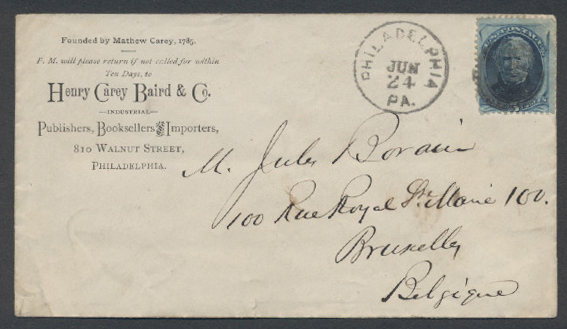 Founded by Mathew Carey, 1785.
P. M. will please return if not called for within
Ten Days, to
Henry Carey Baird & Co.
INDUSTRIAL
Publishers, Booksellers and Importers,
810 WALNUT STREET,
PHILADELPHIA.
PHILADELPHIA
JUN
24
PA.
U.S. POSTAGE
M. Jules
100 Rue Royal Ste Marie 100.
Bruxelles
Belgique